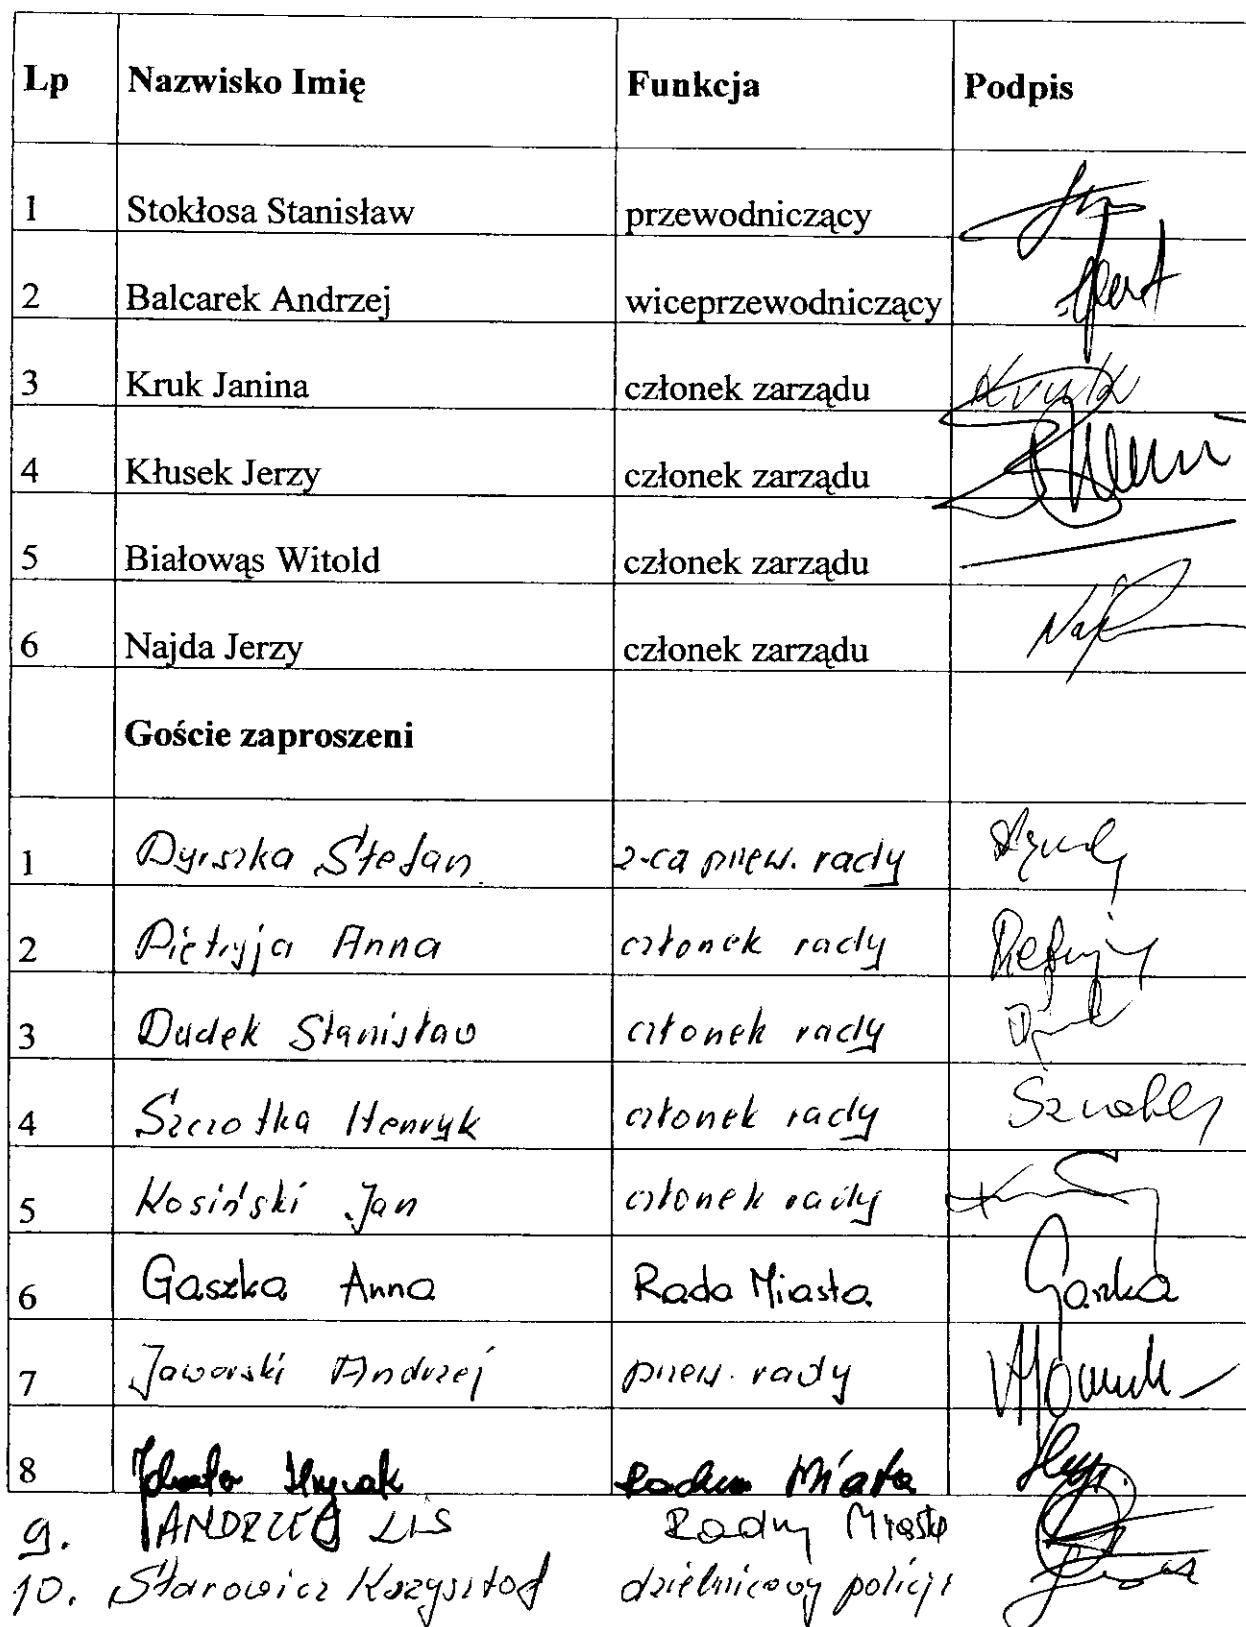 Lp Nazwisko Imię Funkcja Podpis
1 Stokłosa Stanisław przewodniczący
2 Balcarek Andrzej wiceprzewodniczący
3 Kruk Janina członek zarządu Kruk
4 Kłusek Jerzy członek zarządu
5 Białowąs Witold członek zarządu
6 Najda Jerzy członek zarządu
Goście zaproszeni
1 Dyrszka Stefan z-ca przew. rady
2 Pietryja Anna członek rady
3 Dudek Stanisław członek rady
4 Szczotka Henryk członek rady
5 Kosiński Jan członek rady
6 Gaszka Anna Rada Miasta Gaszka
7 Jaworski Andrzej przew. rady
8 Miasta
9. ANDRZEJ LIS Radny Miasta
10. Starowicz Krzysztof dzielnicowy policji